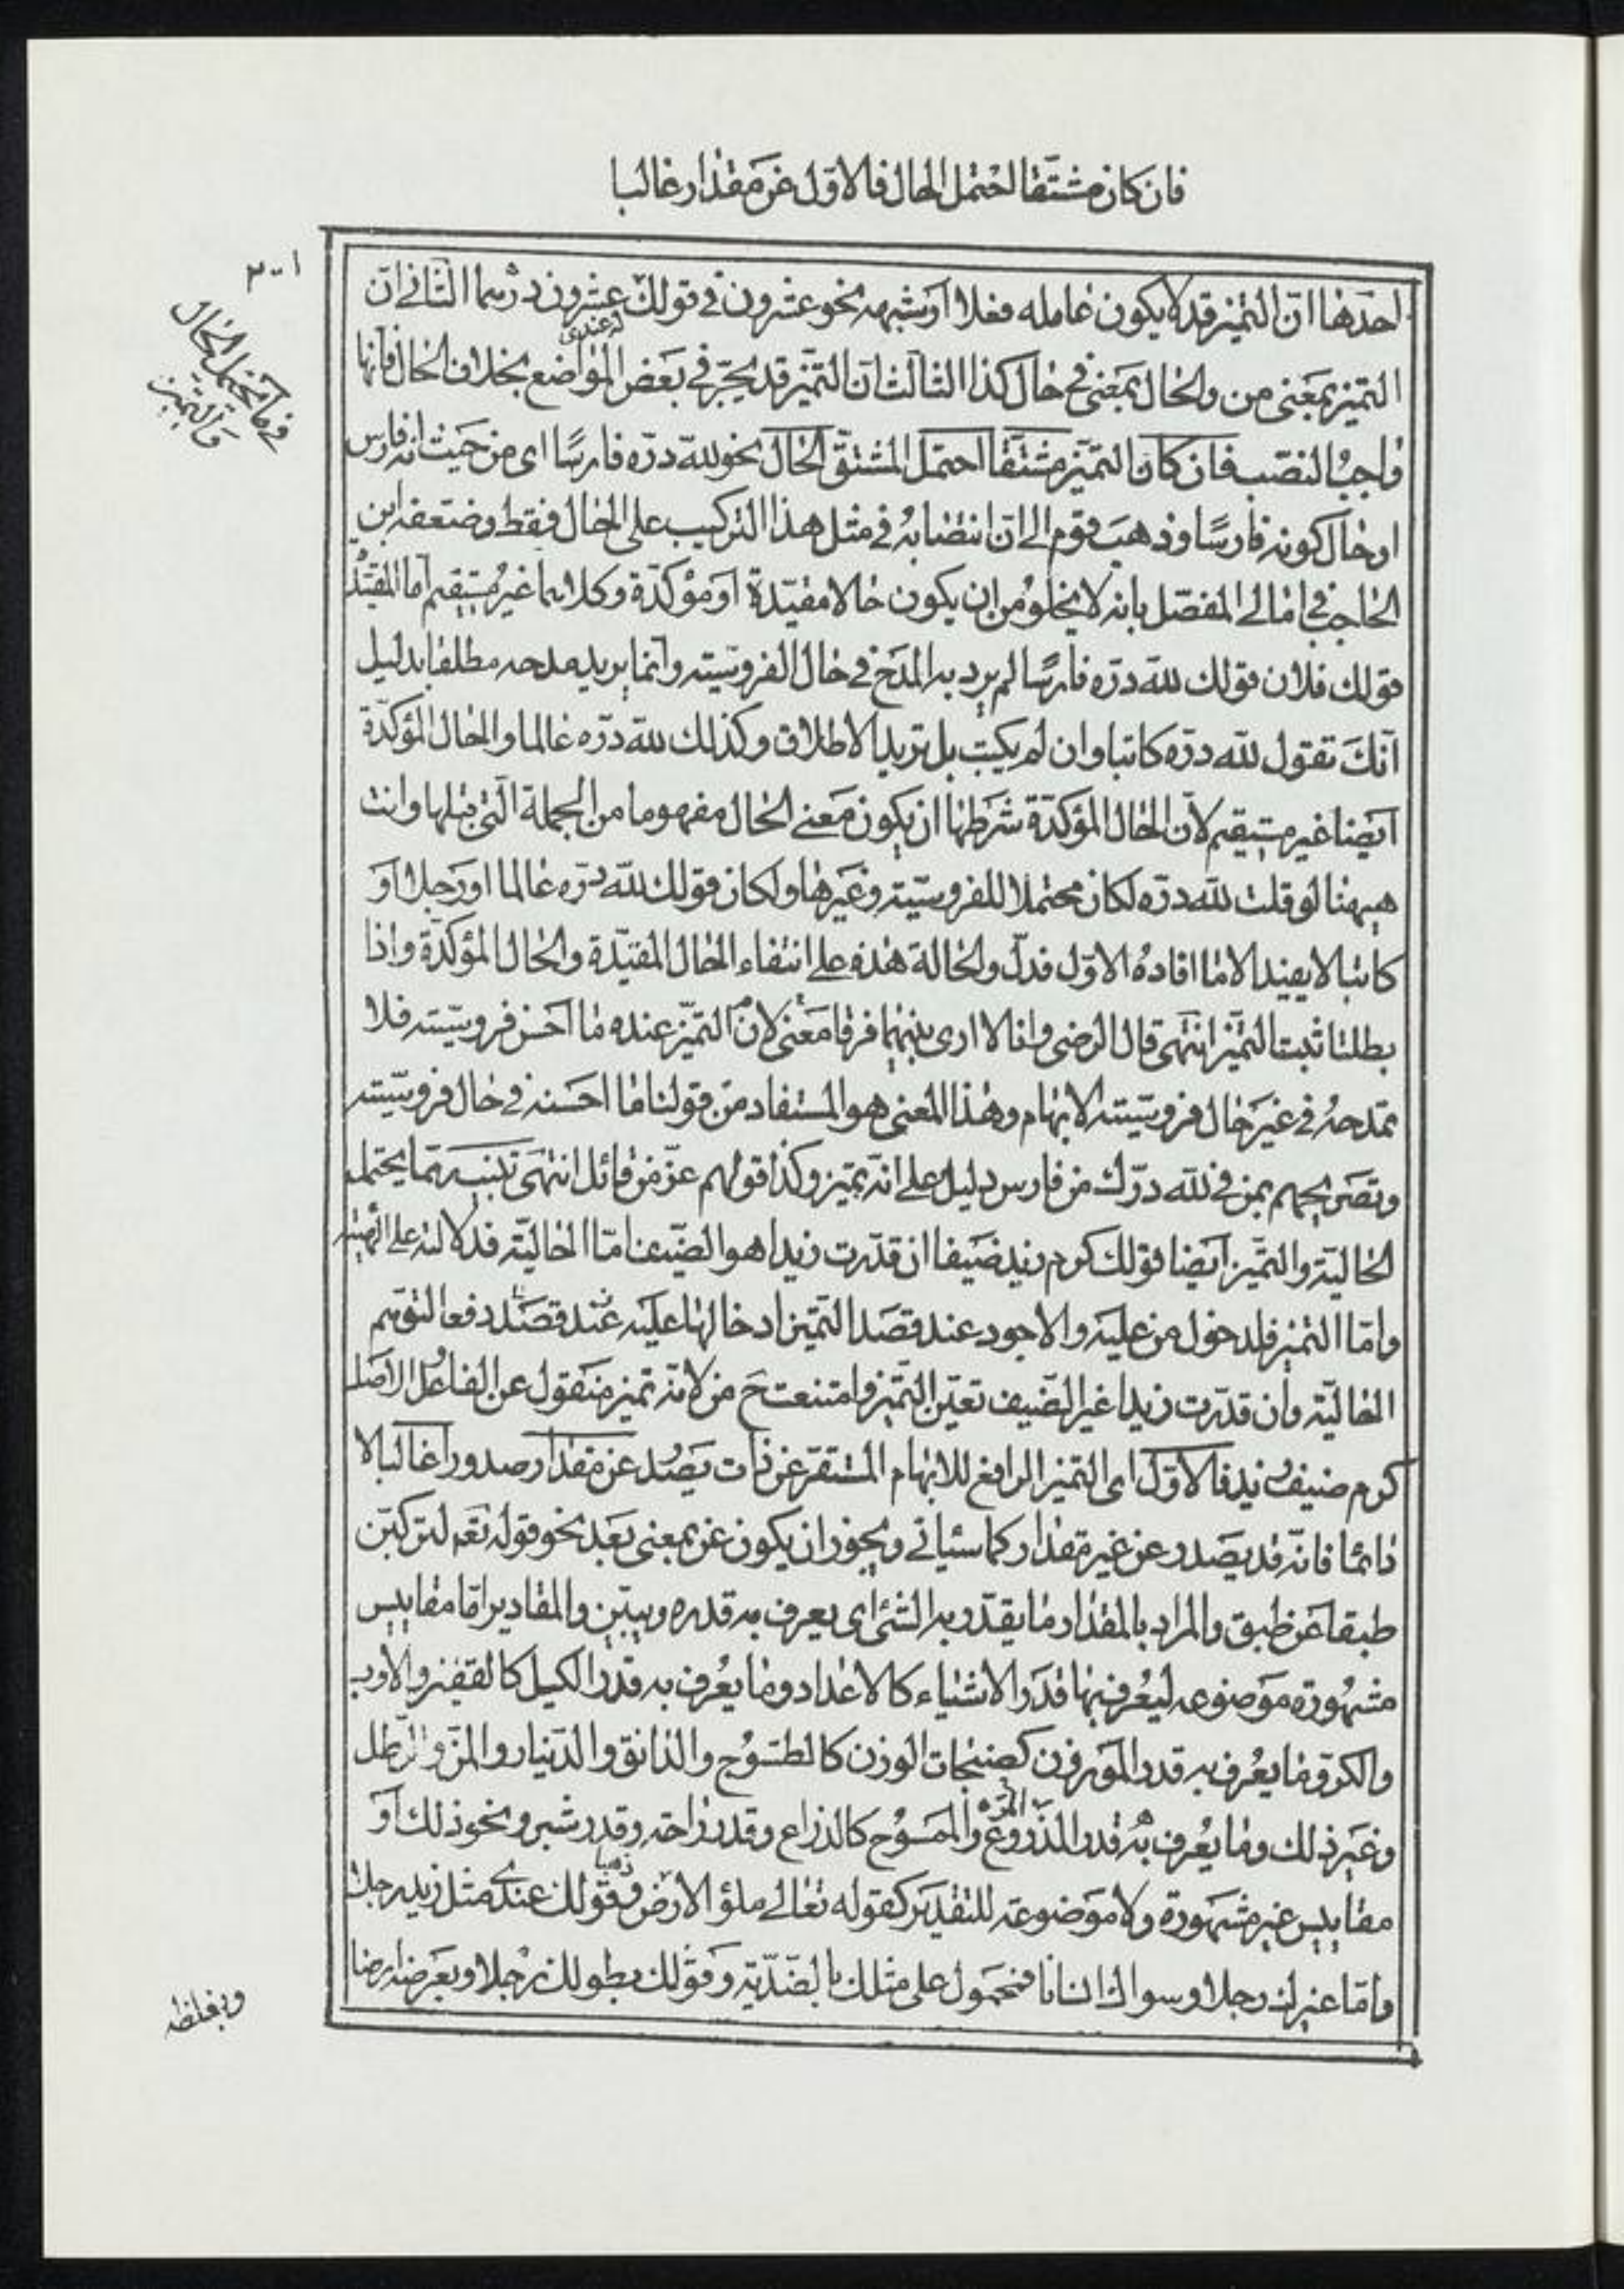 فان كان مشتقا احتمل الحال فالاول عن مقدار غالبا
٣٠١
فى ما يحتمل الحال
والتميز
احدها ان التميز قد لا يكون عامله فعلا او شبهه نحو عشرون فى قولك عشرون درهما الثانى ان
عندى
التميز بمعنى من والحال بمعنى فى حال كذا الثالث ان التميز قد يجر فى بعض المواضع بخلاف الحال فانها
واجب النصب فان كان التميز مشتقا احتمل المشتق الحال نحو لله دره فارسًا اى من حيث انه فارس
او حال كونه فارسًا وذهب قوم الى ان انتصابه فى مثل هذا التركيب على الحال فقط وضعفه ابن
الحاجب فى امالى المفصل بانه لا يخلو من ان يكون حالا مقيدة او مؤكدة وكلاهما غير مستقيم اما المقيد
قولك فلان قولك لله دره فارسًا لم يرد به المدح فى حال الفروسية وانما يريد مدحه مطلقا بدليل
انك تقول لله دره كاتبا وان لم يكتب بل تريد الاطلاق وكذلك لله دره عالما والحال المؤكدة
ايضا غير مستقيم لان الحال المؤكدة شرطها ان يكون معنى الحال مفهوما من الجملة التى قبلها وانت
هيهنا لو قلت لله دره لكان محتملا للفروسية وغيرها ولكان قولك لله دره عالما او رجلا او
كاتبا لا يفيد الا ما افاده الاول فدل والحالة هذه على انتفاء الحال المقيدة والحال المؤكدة واذا
بطلتا ثبت التميز انتهى قال الرضى وانا لا ارى بينهما فرقا معنى لان التميز عنده ما احسن فروسيته فلا
تمدحه فى غير حال فروسيته الا بهام وهذا المعنى هو المستفاد من قولنا ما احسنه فى حال فروسيته
وتصريحهم بمن فى لله درك من فارس دليل على انه تميز وكذا قولهم عز من قائل انتهى تنبيه مما يحتمل
الحالية والتميز ايضا قولك كرم زيد ضيفا ان قدرت زيدا هو الضيف اما الحالية فدلالته على الهيئة
واما التميز فلدخول من عليه والاجود عند قصد التميز ادخالها عليه عند قصد دفعا لتوهم
الحالية وان قدرت زيدا غير الضيف تعين التميز وامتنعت ح من لانه تميز منقول عن الفاعل الاصل
كرم ضيف زيد فالاول اى التميز الرافع للابهام المستقر عن ذات يصدر عن مقدار صدورا غالبا لا
دائما فانه قد يصدر عن غير مقدار كما سياتى ويجوز ان يكون عن بمعنى بعد نحو قوله تعم لتركبن
طبقا عن طبق والمراد بالمقدار ما يقدر به الشئ اى يعرف به قدره ويبين والمقادير اما مقاييس
مشهورة موضوعه ليعرف بها قدر الاشياء كالاعداد وما يعرف به قدر الكيل كالقفيز والاردب
والكر وما يعرف به قدر الموزون كصنجات الوزن كالطسوج والدانق والدينار والمن والرطل
وغير ذلك وما يعرف به قدر المذروع والممسوح كالذراع وقدر راحة وقدر شبر ونحو ذلك او
ذهبا
مقاييس غير مشهورة ولا موضوعة للتقدير كقوله تعالى ملؤ الارض وقولك عندى مثل زيد رجلا
واما غيرك رجلا وسواك انسانا فمحمول على مثلك بالضدية وقولك بطولك رجلا وبعرضه ارضا
وبغلظه